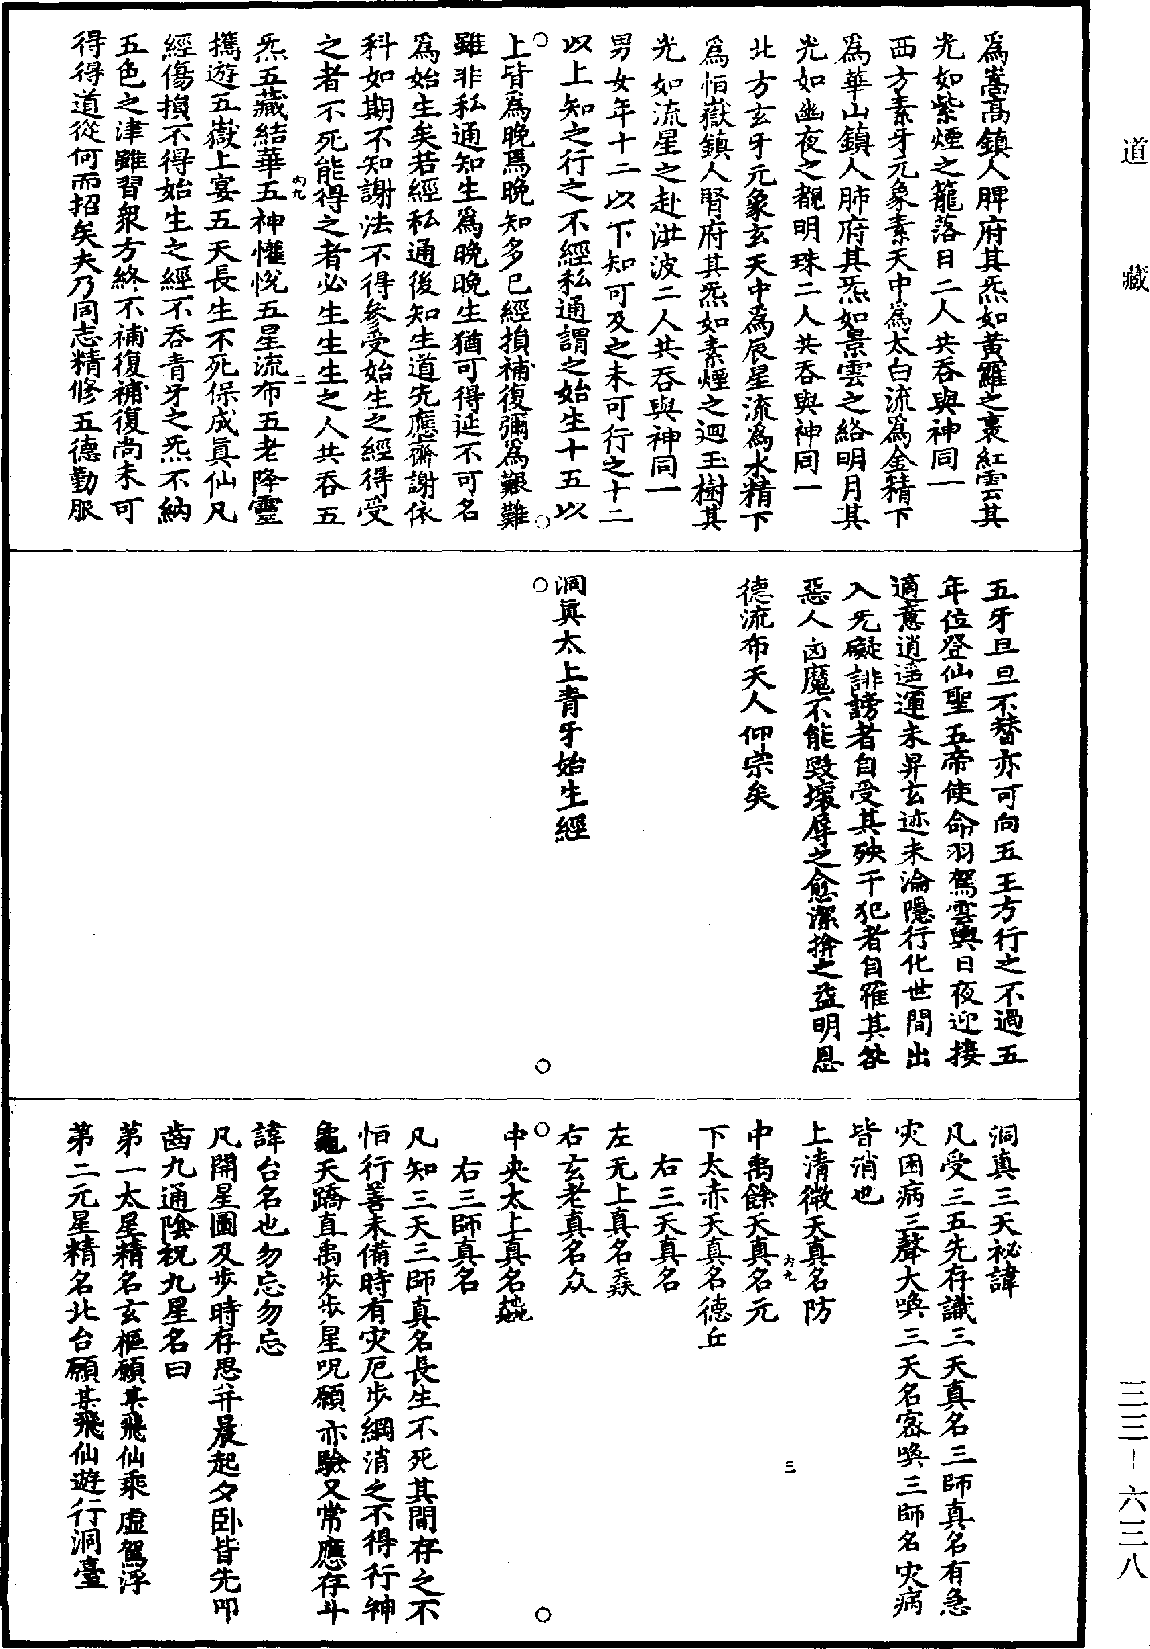 道藏
三三—六三八
爲嵩高鎮人脾府其炁如黃羅之裹紅雲其
光如紫煙之籠落日二人共吞與神同一
西方素牙元象素天中爲太白流爲金精下
爲華山鎮人肺府其炁如景雲之絡明月其
光如幽夜之覩明珠二人共吞與神同一
北方玄牙元象玄天中爲辰星流爲水精下
爲恒嶽鎮人腎府其炁如素煙之迴玉樹其
光如流星之赴洪波二人共吞與神同一
男女年十二以下知可及之未可行之十二
以上知之行之不經私通謂之始生十五以
上皆爲晚焉晚知多已經損補復彌爲艱難
雖非私通知生爲晚晚生猶可得延不可名
爲始生矣若經私通後知生道先應齋謝依
科如期不知謝法不得參受始生之經得受
之者不死能得之者必生生生之人共吞五
炁五藏結華五神懽悅五星流布五老降靈
內九
二
攜遊五嶽上宴五天長生不死保成真仙凡
經傷損不得始生之經不吞青牙之炁不納
五色之津雖習衆方終不補復補復尚未可
得得道從何而招矣夫乃同志精修五德勤服
五牙旦旦不替亦可向五王方行之不過五
年位登仙聖五帝使命羽駕雲輿日夜迎接
適意逍遥運未昇玄迹未淪隱行化世間出
入无礙誹謗者自受其殃干犯者自罹其咎
惡人凶魔不能毀壞辱之愈潔揜之益明恩
德流布天人仰宗矣
洞真太上青牙始生經
洞真三天祕諱
凡受三五先存識三天真名三師真名有急
灾困病三聲大喚三天名密喚三師名灾病
皆消也
上清微天真名防
內九
三
中禹餘天真名元
下太赤天真名德丘
右三天真名
左无上真名
右玄老真名众
中央太上真名
右三師真名
凡知三天三師真名長生不死其間存之不
恒行善未備時有灾厄步綱消之不得行神
龜天蹻直禹步步星呪願亦驗又常應存斗
諱台名也勿忘勿忘
凡開星圖及步時存思并晨起夕卧皆先叩
齒九通陰祝九星名曰
第一太星精名玄樞願某飛仙乘虛駕浮
第二元星精名北台願某飛仙遊行洞臺